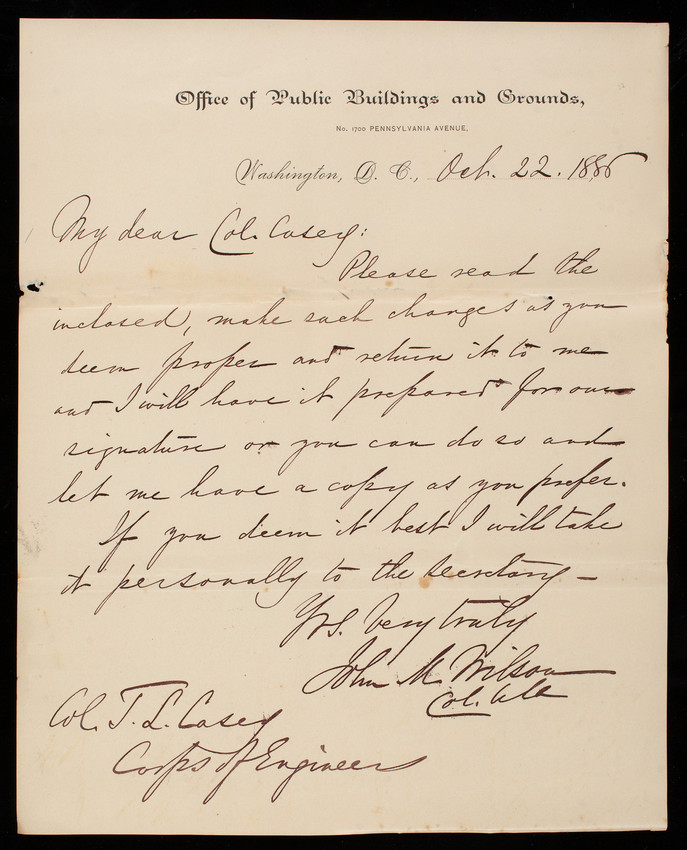 Office of Public Buildings and Grounds,
No. 1700 PENNSYLVANIA AVENUE,
Washington, D. C., Oct. 22. 1886
My dear Col. Casey:
Please read the
inclosed, make such changes as you
deem proper and return it to me
and I will have it prepared for our
signature or you can do so and
let me have a copy as you prefer.
If you deem it best I will take
it personally to the Secretary —
Yrs. Very truly
John M. Wilson
Col.
Col. T. L. Casey
Corps of Engineers